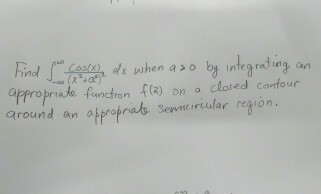 Find ∫_{-∞}^{∞} Cos(x)/(x²+a²)² dx when a>0 by integrating an
appropriate function f(z) on a closed contour
around an appropriate semicircular region.